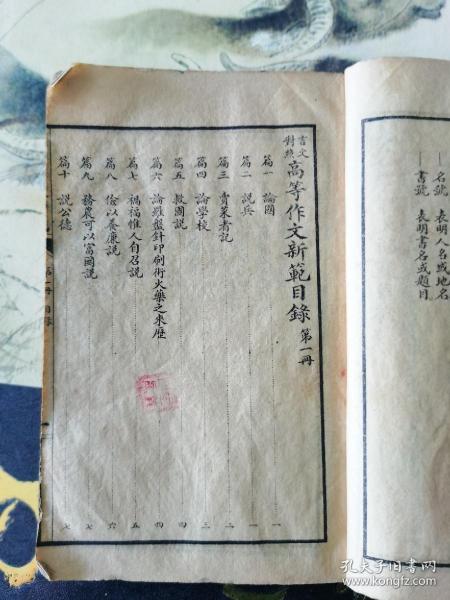 言文對照 高等作文新範目錄 第一冊
篇一 論國 一
篇二 説兵 一
篇三 賣菜者記 二
篇四 論學校 三
篇五 救國説 四
篇六 論羅盤針印刷術火藥之來歷 四
篇七 禍福惟人自召説 五
篇八 儉以養廉説 六
篇九 務農可以富國説 七
篇十 説公德 七
第一冊 目錄
—名號 表明人名或地名
—書號 表明書名或題目
孔夫子旧书网
www.kongfz.com